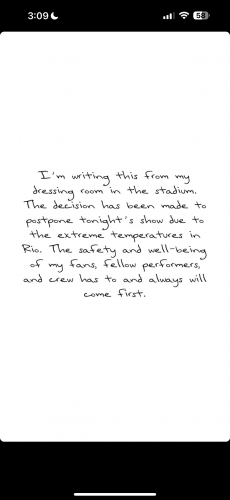 3:09
58
I'm writing this from my
dressing room in the stadium.
The decision has been made to
postpone tonight's show due to
the extreme temperatures in
Rio. The safety and well-being
of my fans, fellow performers,
and crew has to and always will
come first.